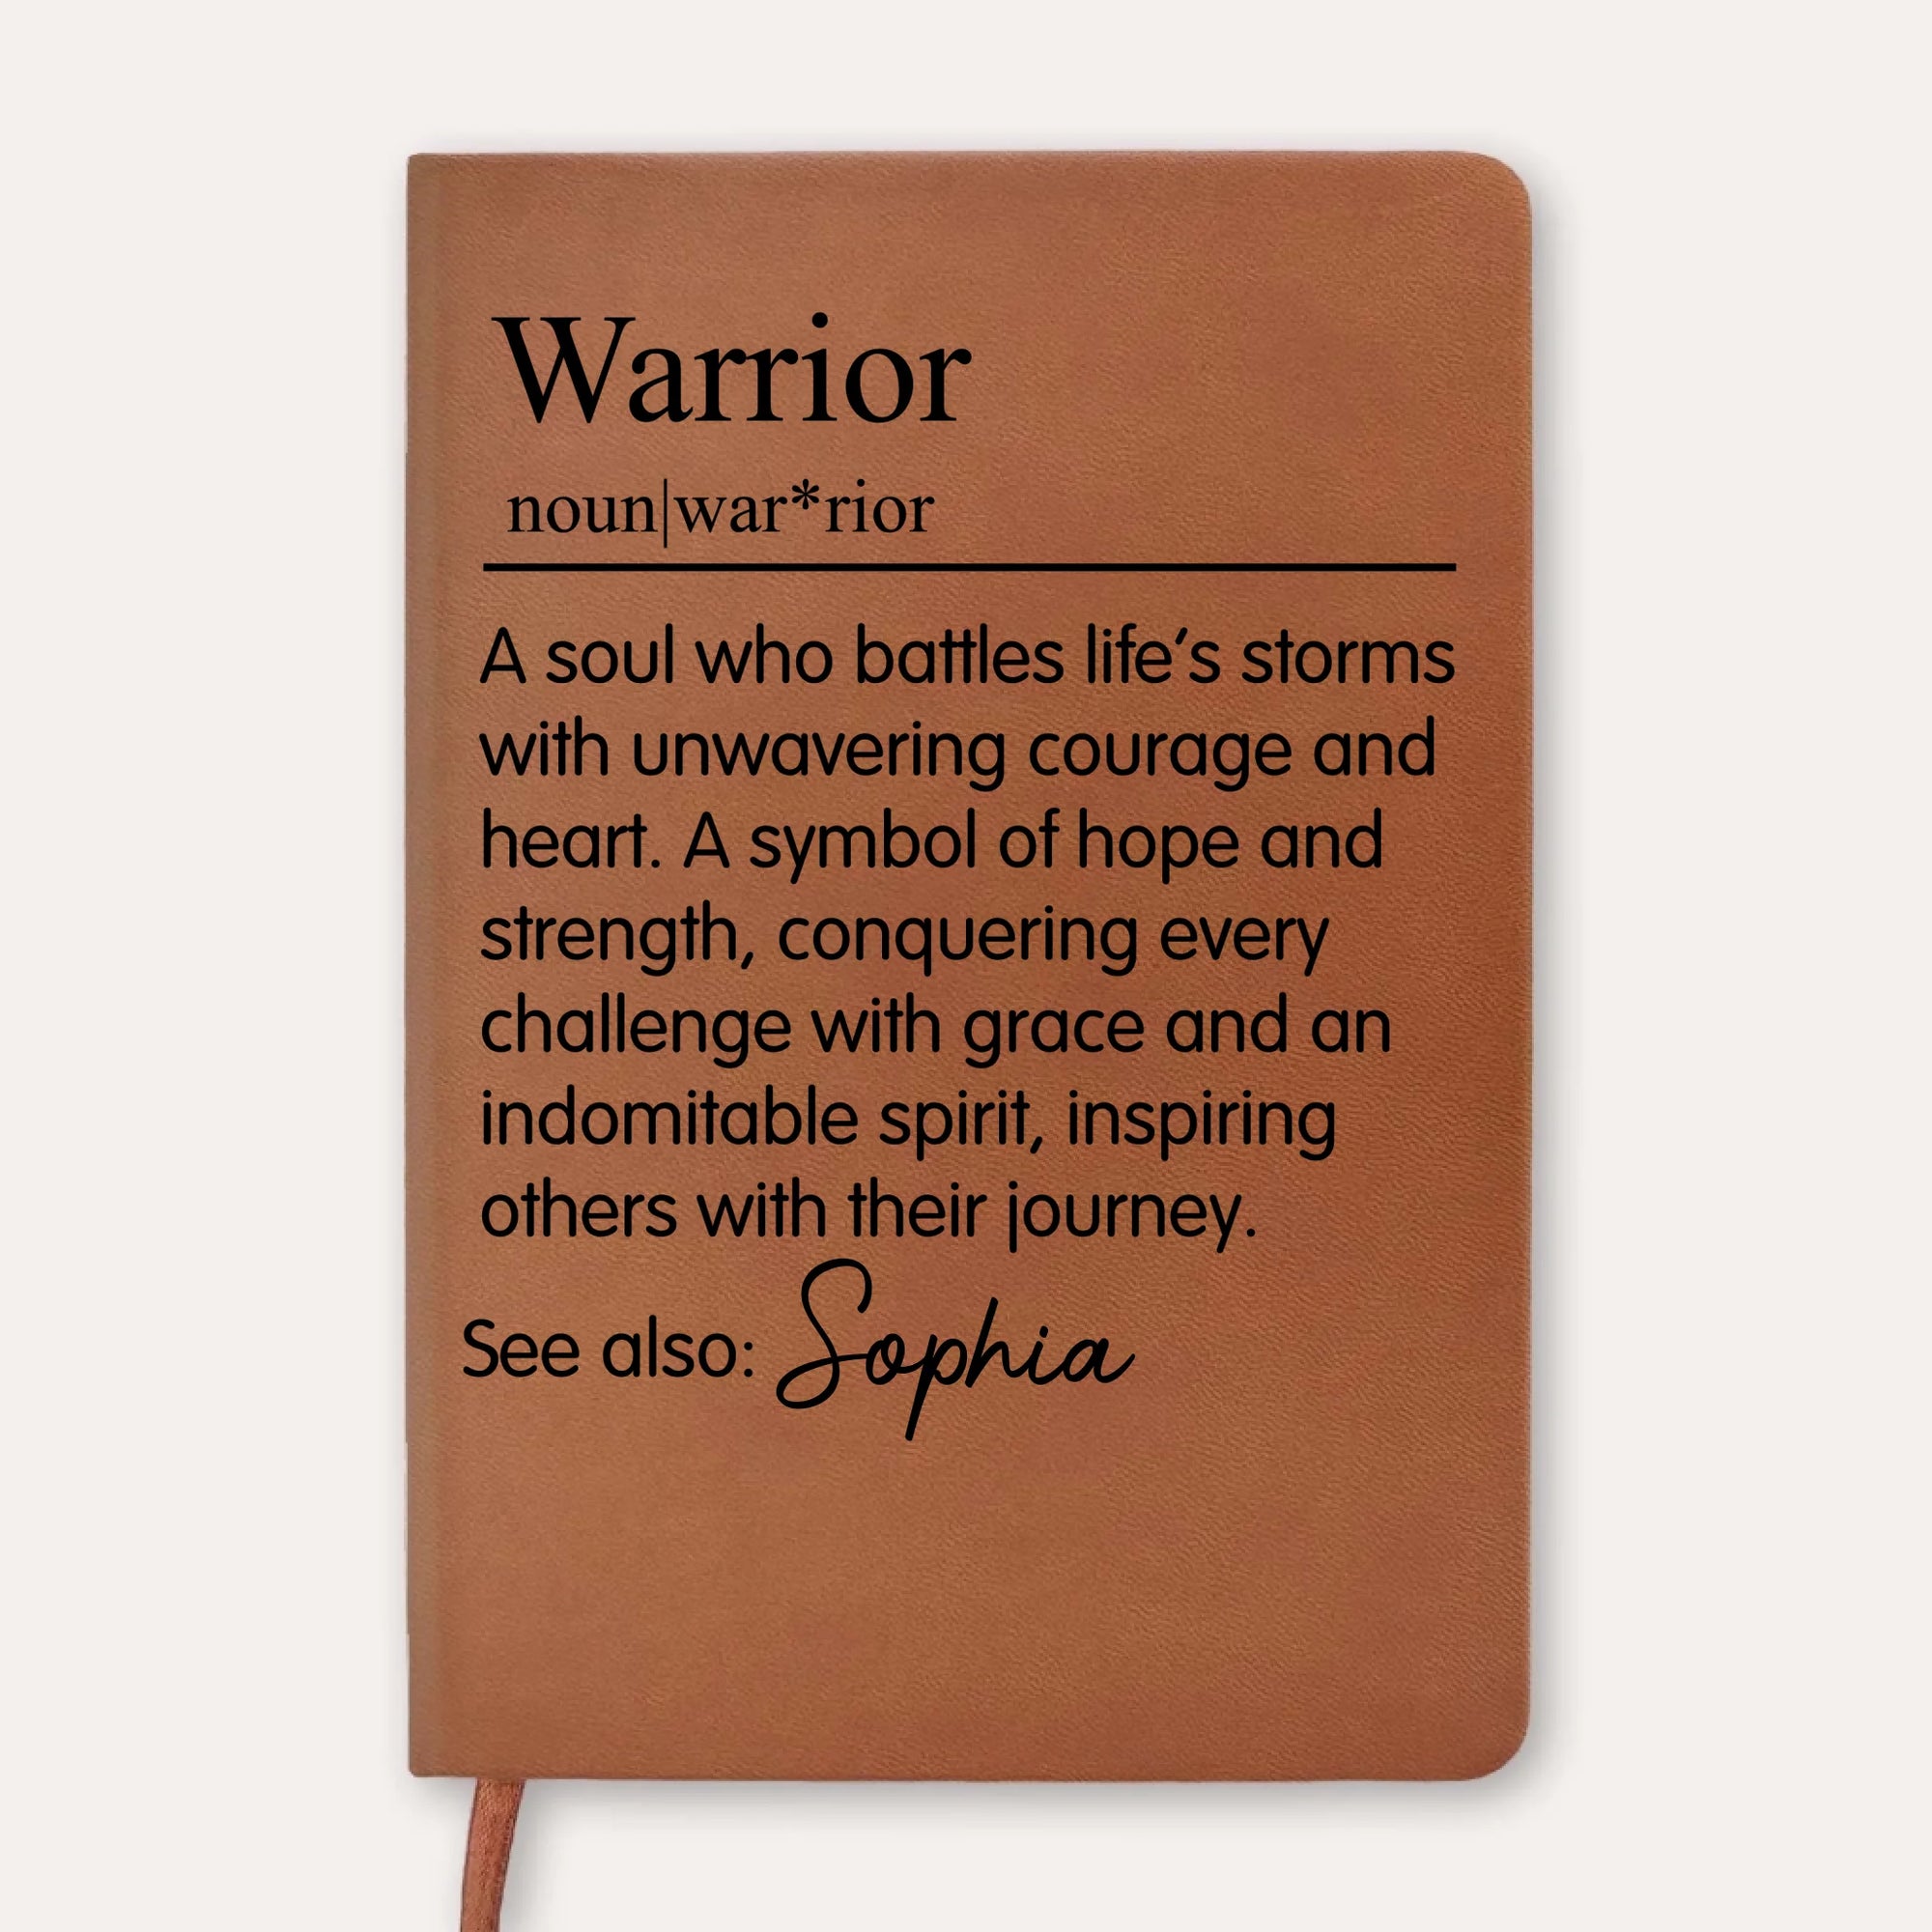 Warrior
noun|war*rior
A soul who battles life’s storms
with unwavering courage and
heart. A symbol of hope and
strength, conquering every
challenge with grace and an
indomitable spirit, inspiring
others with their journey.
See also: Sophia